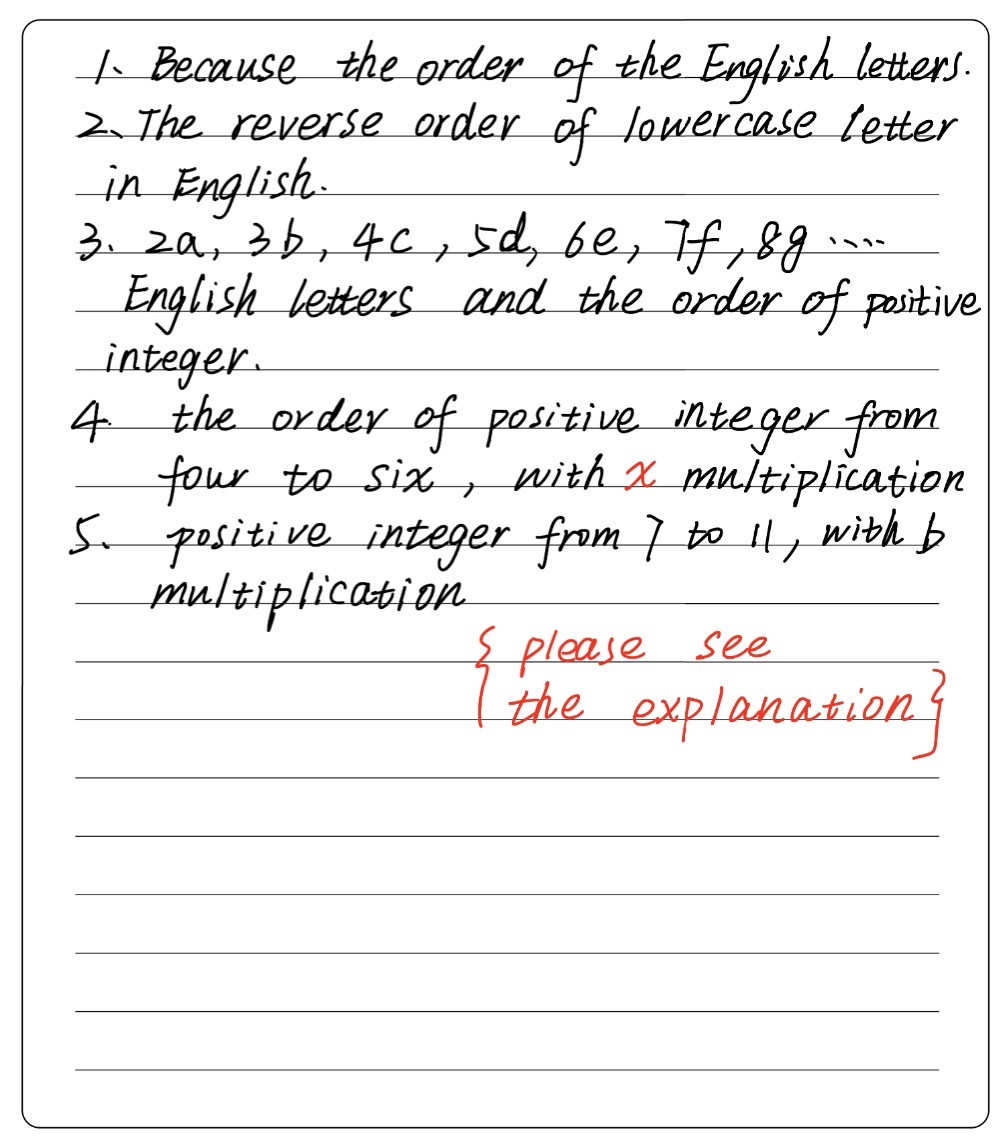 1、Because the order of the English letters.
2、The reverse order of lowercase letter
in English.
3. 2a, 3b, 4c, 5d, 6e, 7f, 8g ....
English letters and the order of positive
integer.
4. the order of positive integer from
four to six, with x multiplication
5. positive integer from 7 to 11, with b
multiplication
{ please see
the explanation }